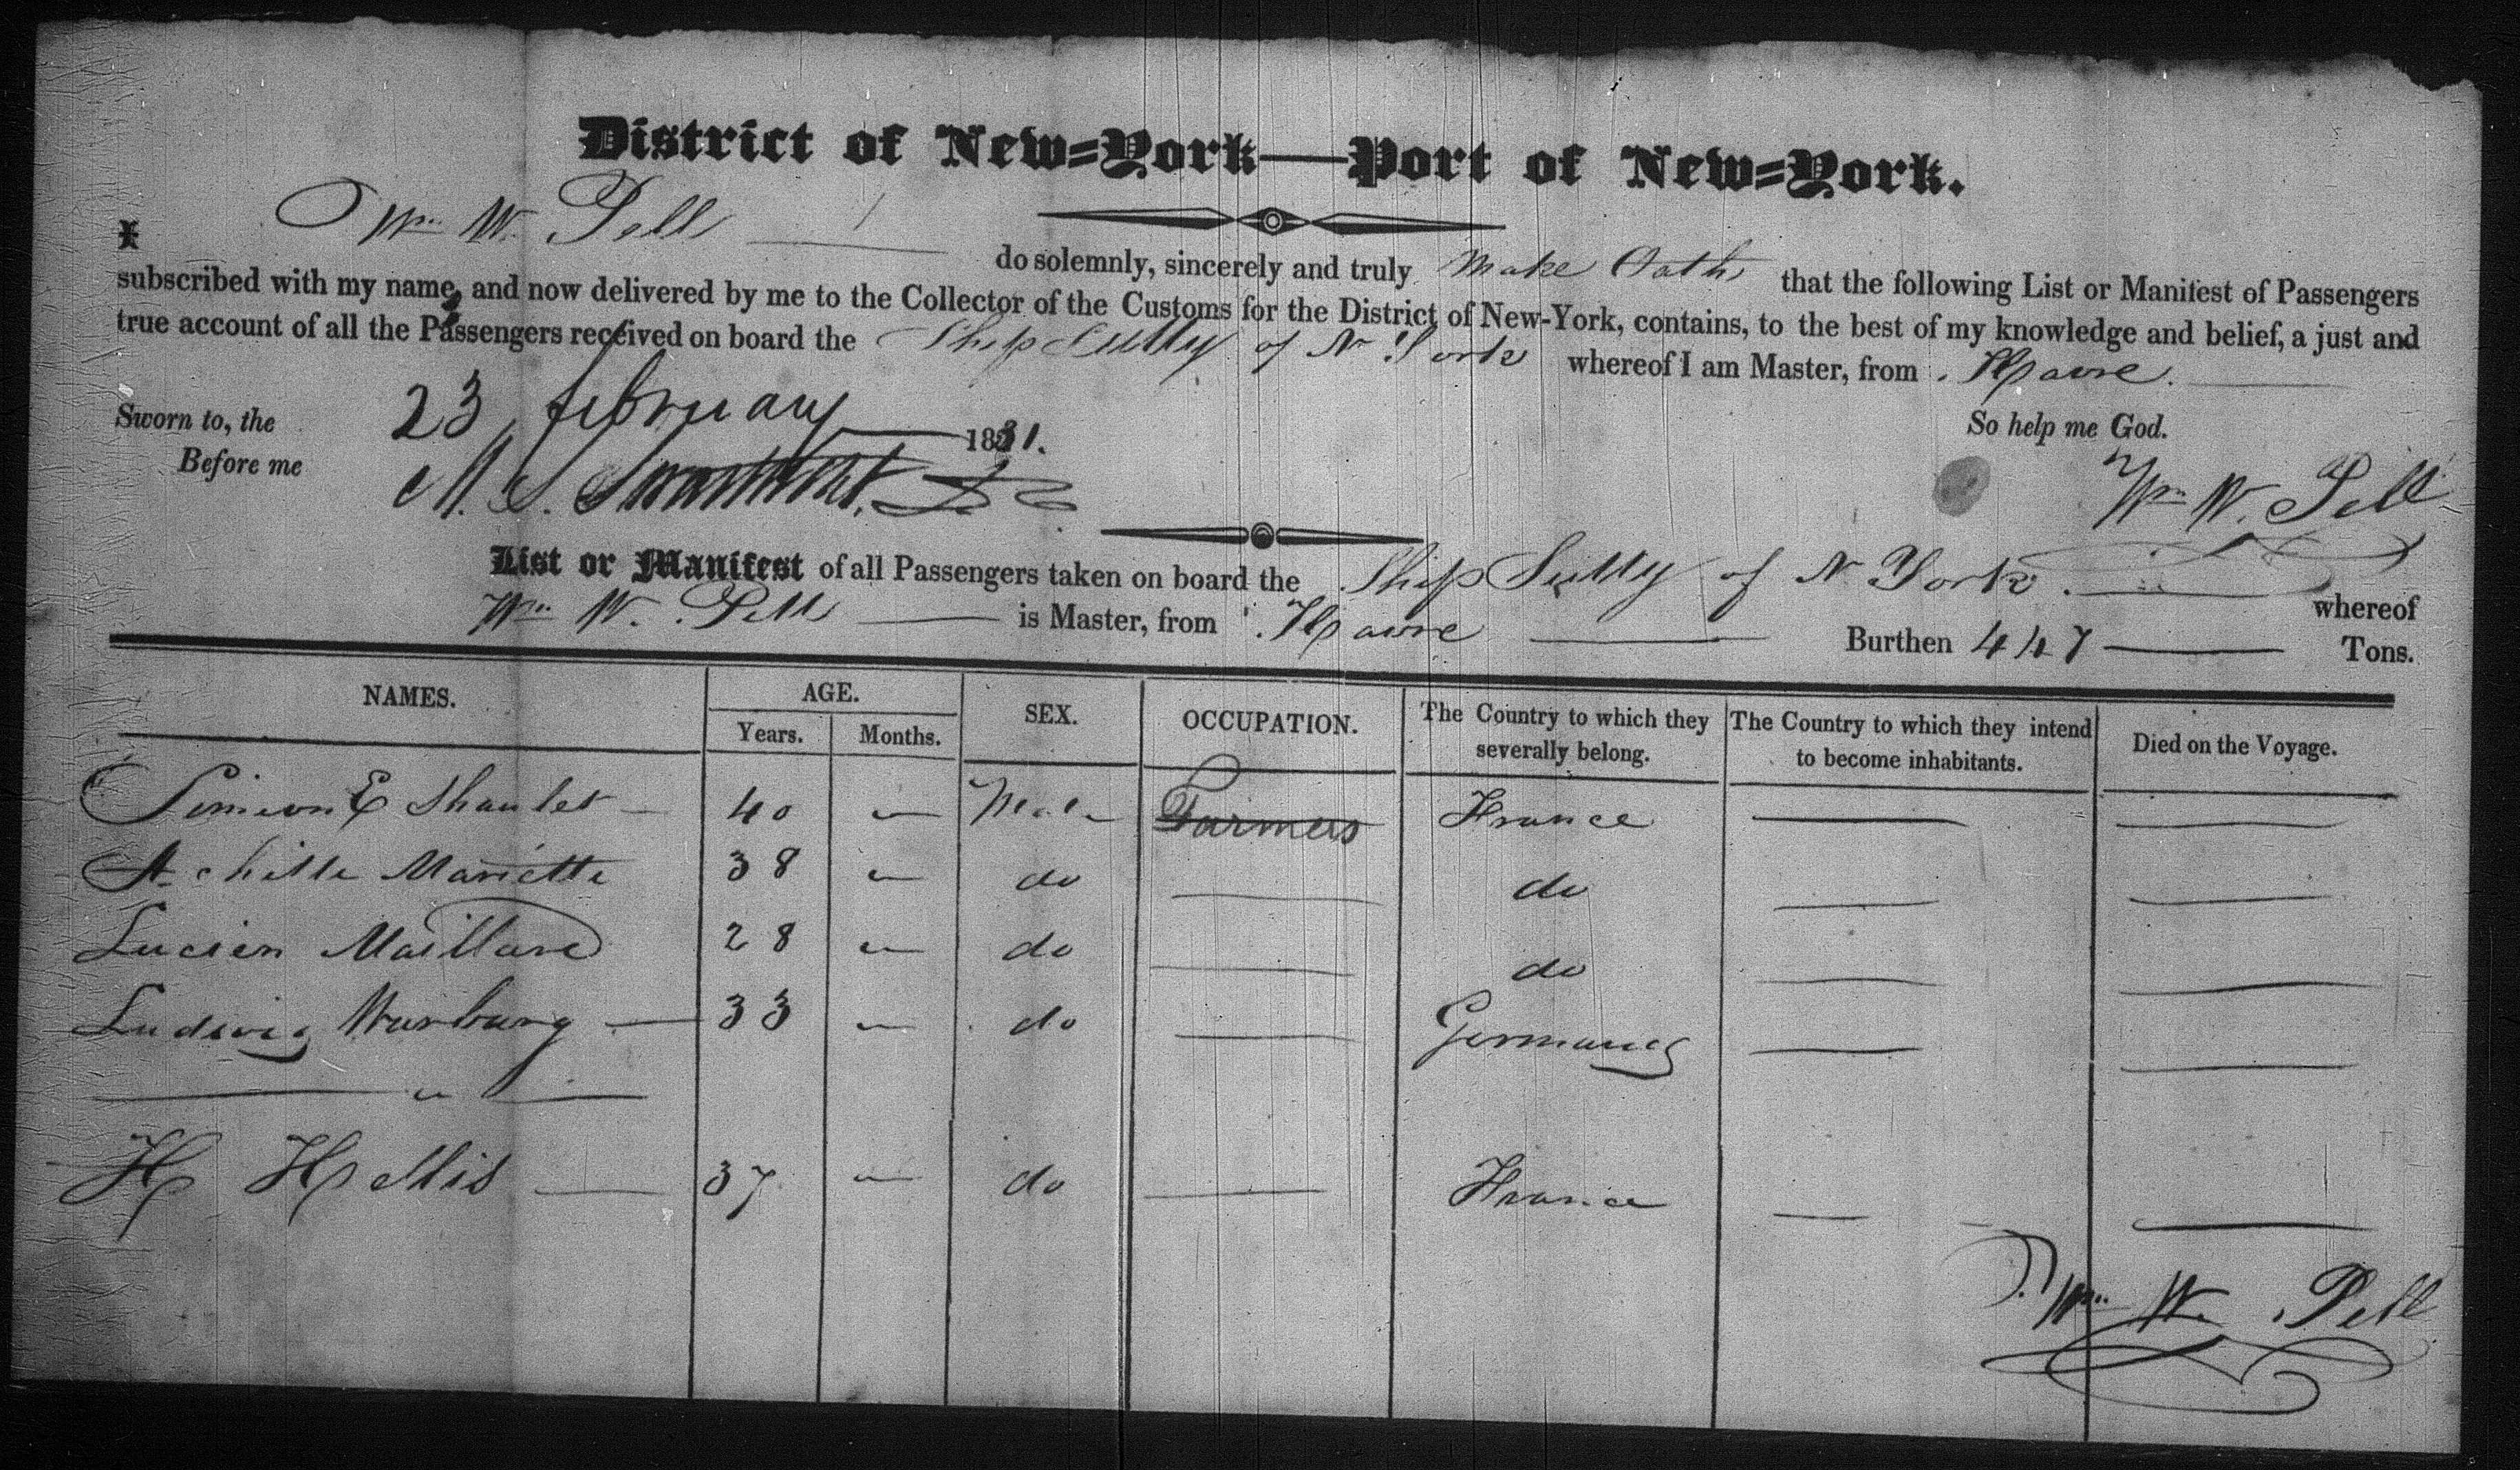 District of New=York—Port of New=York.
I Wm. W. Pell do solemnly, sincerely and truly Make Oath that the following List or Manifest of Passengers
subscribed with my name, and now delivered by me to the Collector of the Customs for the District of New-York, contains, to the best of my knowledge and belief, a just and
true account of all the Passengers received on board the Ship Sully of N York whereof I am Master, from Havre.
Sworn to, the 23 february 1831. So help me God.
Before me M. S. Swartwout, Wm W. Pell
List or Manifest of all Passengers taken on board the Ship Sully of N York. whereof
Wm. W. Pell is Master, from Havre Burthen 447 Tons.
NAMES. AGE. SEX. OCCUPATION. The Country to which they severally belong. The Country to which they intend to become inhabitants. Died on the Voyage.
Years. Months.
Simeon E 40 Male Farmers France
Achille Mariette 38 do do
Lucien Maillard 28 do do
Ludwig Warburg 33 do Germany
H 37 do France
Wm. W. Pell